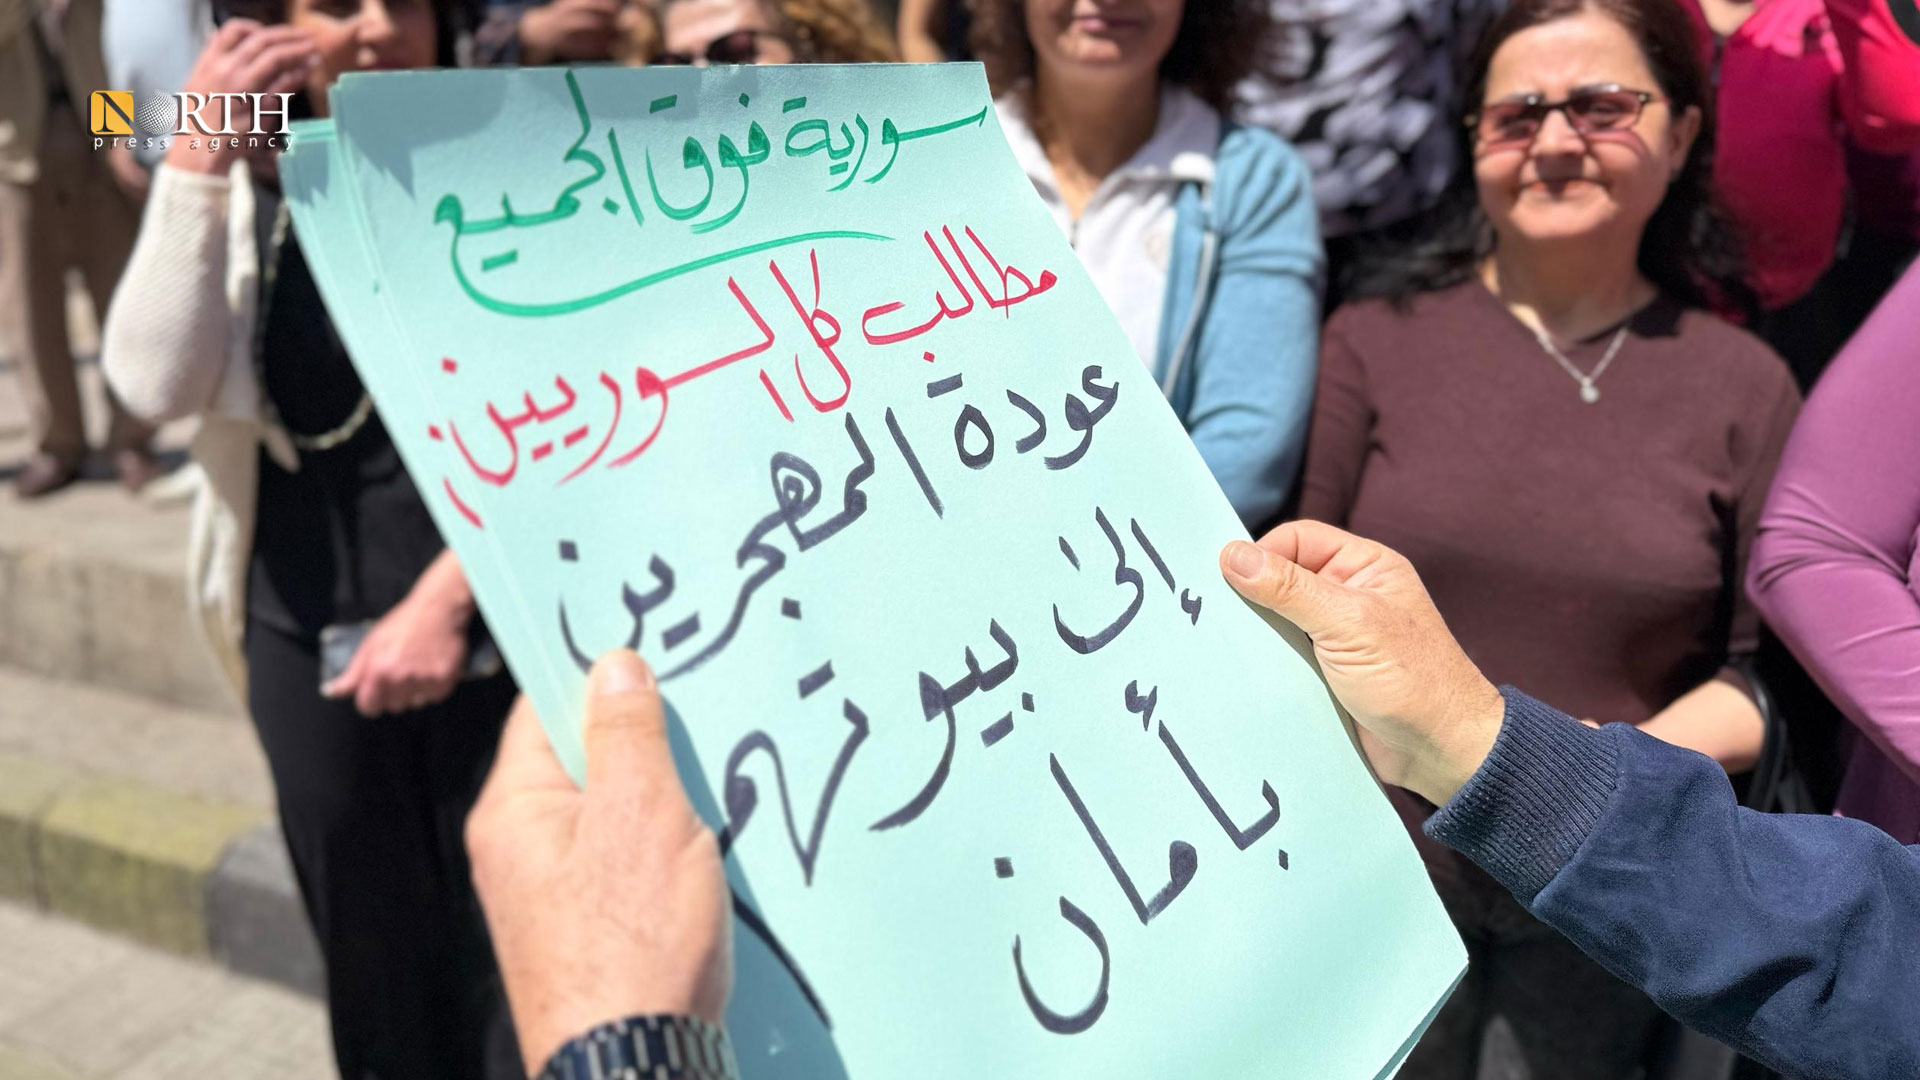 NORTH
press agency
سورية فوق الجميع
مطالب كل السوريين:
عودة المهجرين
إلى بيوتهم
بأمان